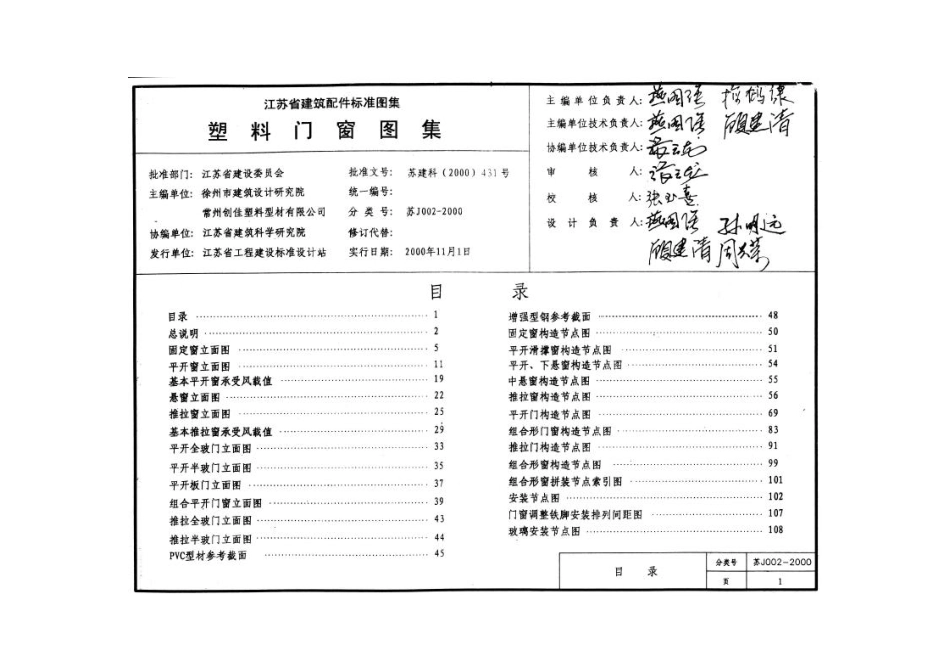 江苏省建筑配件标准图集
塑料门窗图集
批准部门: 江苏省建设委员会 批准文号: 苏建科(2000)431号
主编单位: 徐州市建筑设计研究院 统一编号:
常州创佳塑料型材有限公司 分类号: 苏J002-2000
协编单位: 江苏省建筑科学研究院 修订代替:
发行单位: 江苏省工程建设标准设计站 实行日期: 2000年11月1日
主编单位负责人:
主编单位技术负责人:
协编单位技术负责人:
审核人:
校核人:
设计负责人:
目录
目录 1
总说明 2
固定窗立面图 5
平开窗立面图 11
基本平开窗承受风载值 19
悬窗立面图 22
推拉窗立面图 25
基本推拉窗承受风载值 29
平开全玻门立面图 33
平开半玻门立面图 35
平开板门立面图 37
组合平开门窗立面图 39
推拉全玻门立面图 43
推拉半玻门立面图 44
PVC型材参考截面 45
增强型钢参考截面 48
固定窗构造节点图 50
平开滑撑窗构造节点图 51
平开、下悬窗构造节点图 54
中悬窗构造节点图 55
推拉窗构造节点图 56
平开门构造节点图 69
组合形门窗构造节点图 83
推拉门构造节点图 91
组合形窗构造节点图 99
组合形窗拼装节点索引图 101
安装节点图 102
门窗调整铁脚安装排列间距图 107
玻璃安装节点图 108
目录 分类号 苏J002-2000
页 1